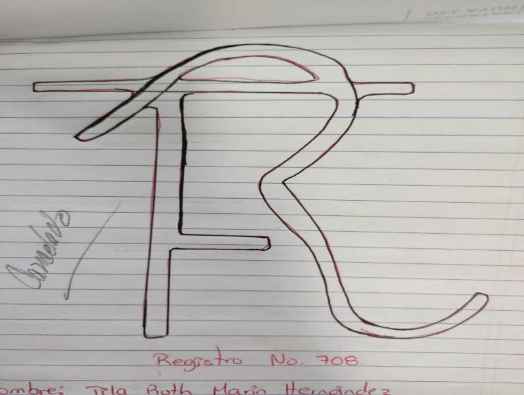 Cancelado
Registro No. 708
ombre: Irla Ruth Marín Hernández